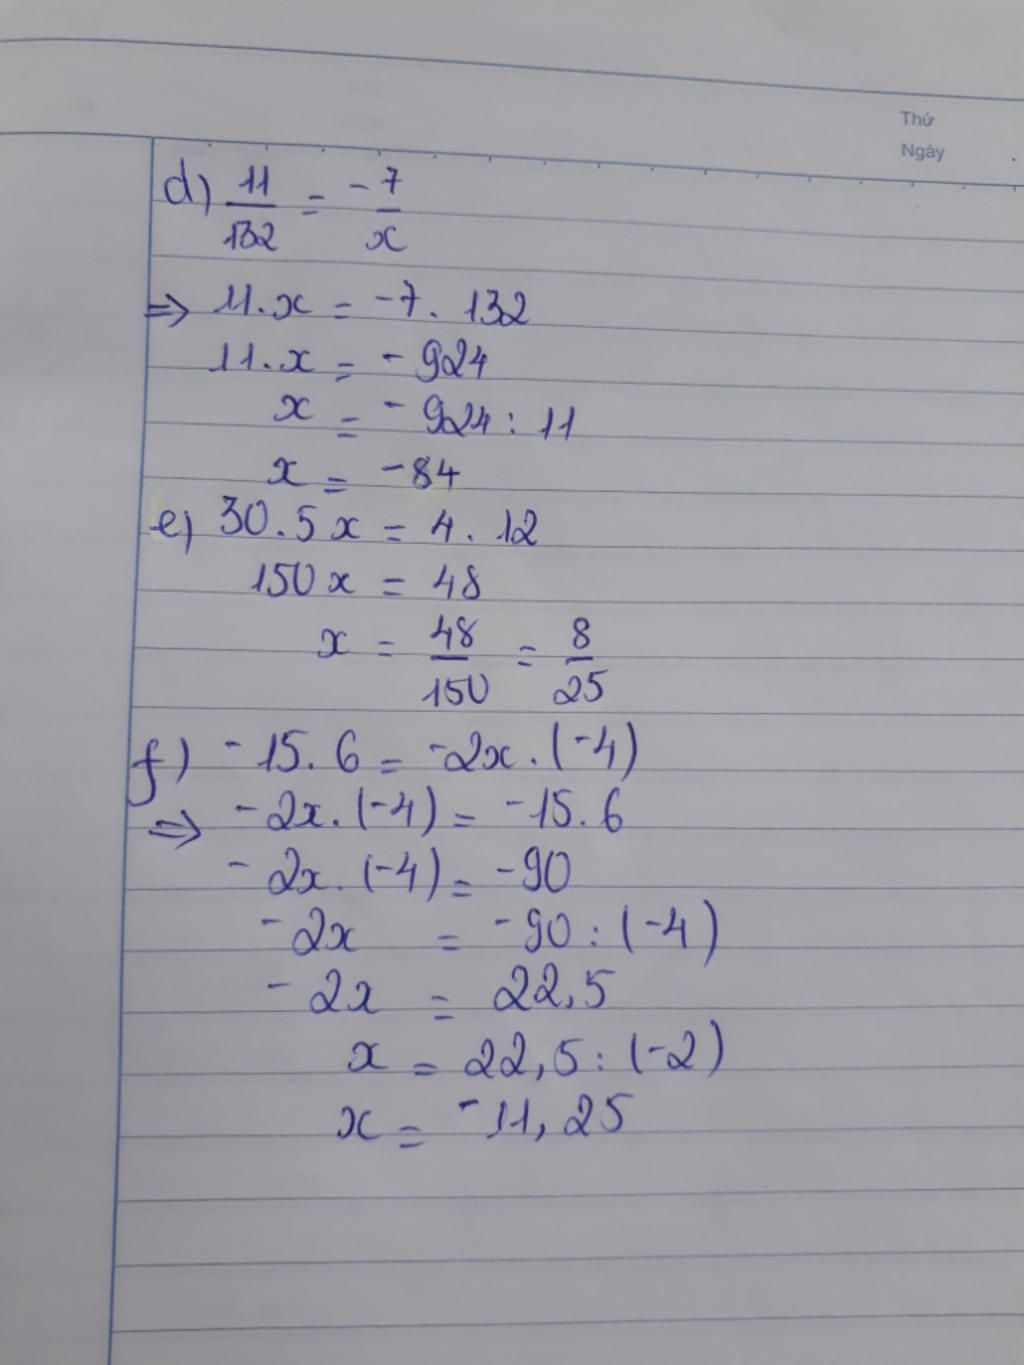 Thứ
Ngày
d) 11/132 = -7/x
⇒ 11.x = -7. 132
11.x = - 924
x = - 924 : 11
x = -84
e) 30.5x = 4. 12
150x = 48
x = 48/150 = 8/25
f) -15.6 = -2x.(-4)
⇒ -2x.(-4) = -15.6
-2x.(-4) = -90
-2x = -90 : (-4)
-2x = 22,5
x = 22,5 : (-2)
x = -11,25